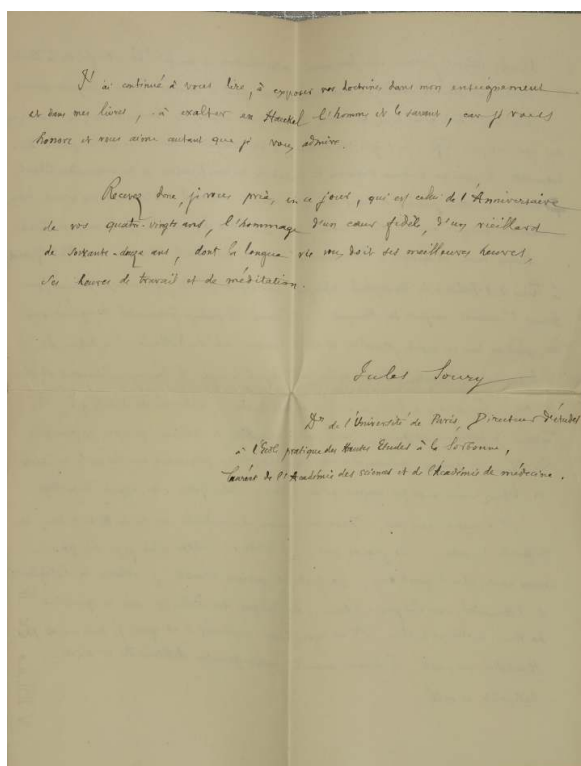 J'ai continué à vous lire, à exposer vos doctrines dans mon enseignement
et dans mes livres, à exalter en Haeckel l'homme et le savant, car je vous
honore et vous aime autant que je vous admire.
Recevez donc, je vous prie, en ce jour, qui est celui de l'Anniversaire
de vos quatre-vingts ans, l'hommage d'un cœur fidèle, d'un vieillard
de soixante-douze ans, dont la longue vie vous doit ses meilleures heures,
ses heures de travail et de méditation.
Jules Soury
Dr de l'Université de Paris, Directeur d'études
à l'École pratique des Hautes Etudes à la Sorbonne,
Lauréat de l'Académie des sciences et de l'Académie de médecine.